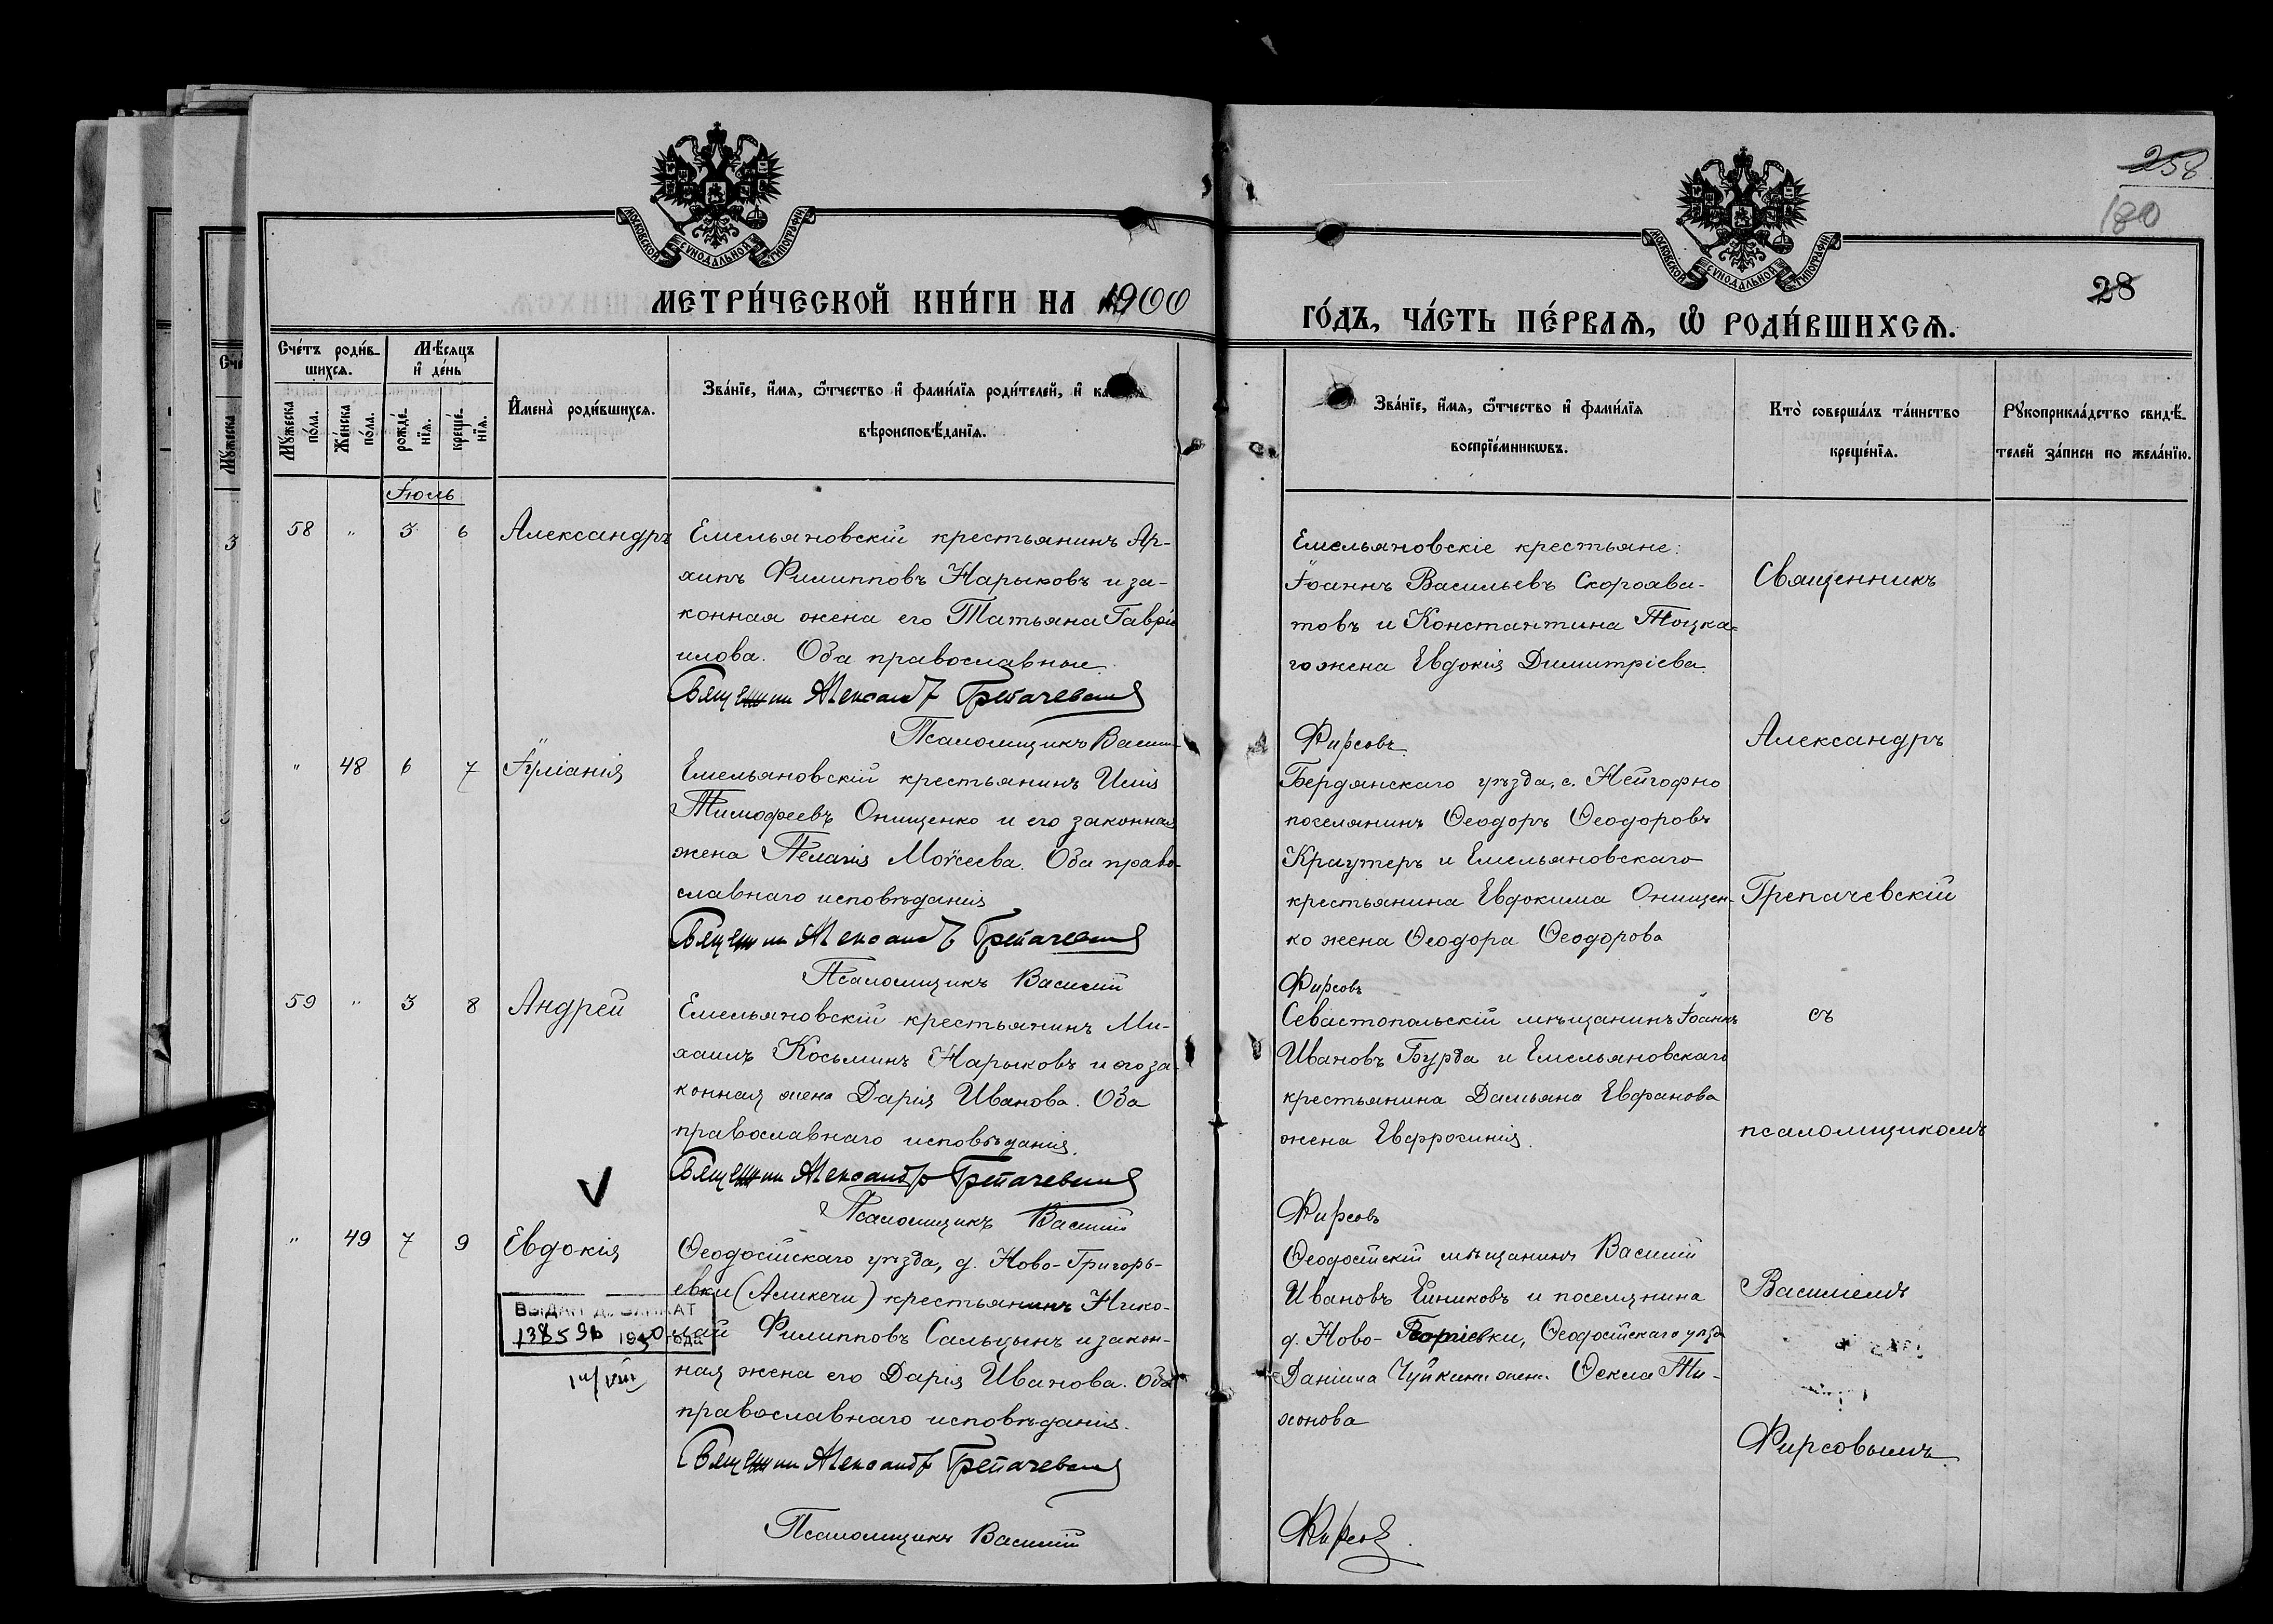 258
180
28
МОСКОВСКОЙ СѴНОДАЛЬНОЙ ТИПОГРАФІИ
МОСКОВСКОЙ СѴНОДАЛЬНОЙ ТИПОГРАФІИ
МЕТРИ́ЧЕСКОЙ КНИ́ГИ НА 1900
ГО́ДЪ, ЧА́СТЬ ПЕ́РВАѦ, Ѽ РОДИ́ВШИХСѦ.
Сче́тъ роди́в-
шихсѧ.
Мѣ́сѧцъ
и҆ де́нь
Мꙋжеска
по́ла.
Же́нска
по́ла.
рожде́-
нїѧ.
креще́-
нїѧ.
И҆мена̀ роди́вшихсѧ.
Зва́нїе, и҆́мѧ, ѻ҆́тчество и҆ фами́лїѧ роди́телей, и҆
вѣроисповѣ́данїѧ.
Зва́нїе, и҆́мѧ, ѻ҆́тчество и҆ фами́лїѧ
воспрїе́мникѡвъ.
Кто̀ соверша́лъ та́инство
креще́нїѧ.
Рꙋкоприкла́дство свидѣ́-
телей за́писи по жела́нїю.
Іюль
58 " 5 6 Александръ
Емельяновскій крестьянинъ Ар-
хипъ Филипповъ Нарыковъ и за-
конная жена его Татьяна Гаврі-
илова. Оба православные.
Священник Александр Грепачевскій
Псаломщикъ Васи-
Емельяновскіе крестьяне:
Іоаннъ Васильевъ Скоробва-
товъ и Константина Тоцка-
го жена Евдокія Димитріева
Фирсовъ
" 48 6 7 Іуліанія
Емельяновскій крестьянинъ Илія
Тимофеевъ Онищенко и его законная
жена Пелагія Моѵсеева. Оба право-
славнаго исповѣданія
Священник Александр Грепачевскій
Псаломщикъ Василій
Бердянскаго уѣзда, с. Нейгофно
поселянинъ Ѳеодоръ Ѳеодоровъ
Краутеръ и Емельяновскаго
крестьянина Евдокима Онищен-
ко жена Ѳеодора Ѳеодорова
Фирсовъ
59 " 3 8 Андрей
Емельяновскій крестьянинъ Ми-
хаилъ Косьминъ Нарыковъ и его за-
конная жена Дарія Иванова. Оба
православнаго исповѣданія.
Священник Александр Грепачевскій
Псаломщикъ Василій
Севастопольскій мѣщанинъ Іоаннъ
Ивановъ Бурда и Емельяновскаго
крестьянина Дамьяна Евфанова
жена Евфросинія.
Фирсовъ
" 49 7 9 Евдокія
Ѳеодосійскаго уѣзда, д. Ново-Григорь-
евки (Аликечи) крестьянинъ Нико-
лай Филипповъ Сальцынъ и закон-
ная жена его Дарія Иванова. Оба
православнаго исповѣданія.
Священник Александр Грепачевскій
Псаломщикъ Василій
ВЫДАН
1940 года
Ѳеодосійскій мѣщанинъ Василій
Ивановъ Ейниковъ и поселянина
д. Ново-Георгіевки, Ѳеодосійскаго уѣзда
Даніила Чуйкина жена Ѳекла Ти-
хонова
Фирсов
Священникъ
Александръ
Грепачевскій
съ
псаломщикомъ
Василіемъ
Фирсовымъ.